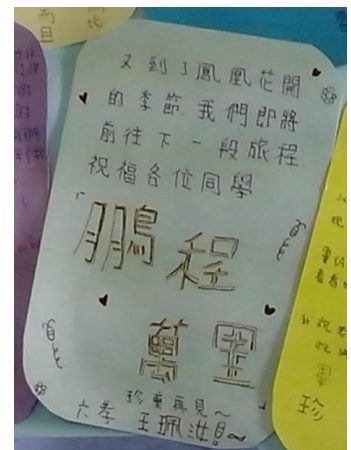 又到了鳳凰花開
的季節.我們即將
前往下一段旅程.
祝福各位同學
「鵬程
萬里」
珍重再見~
六孝 王珮汝!~
珍